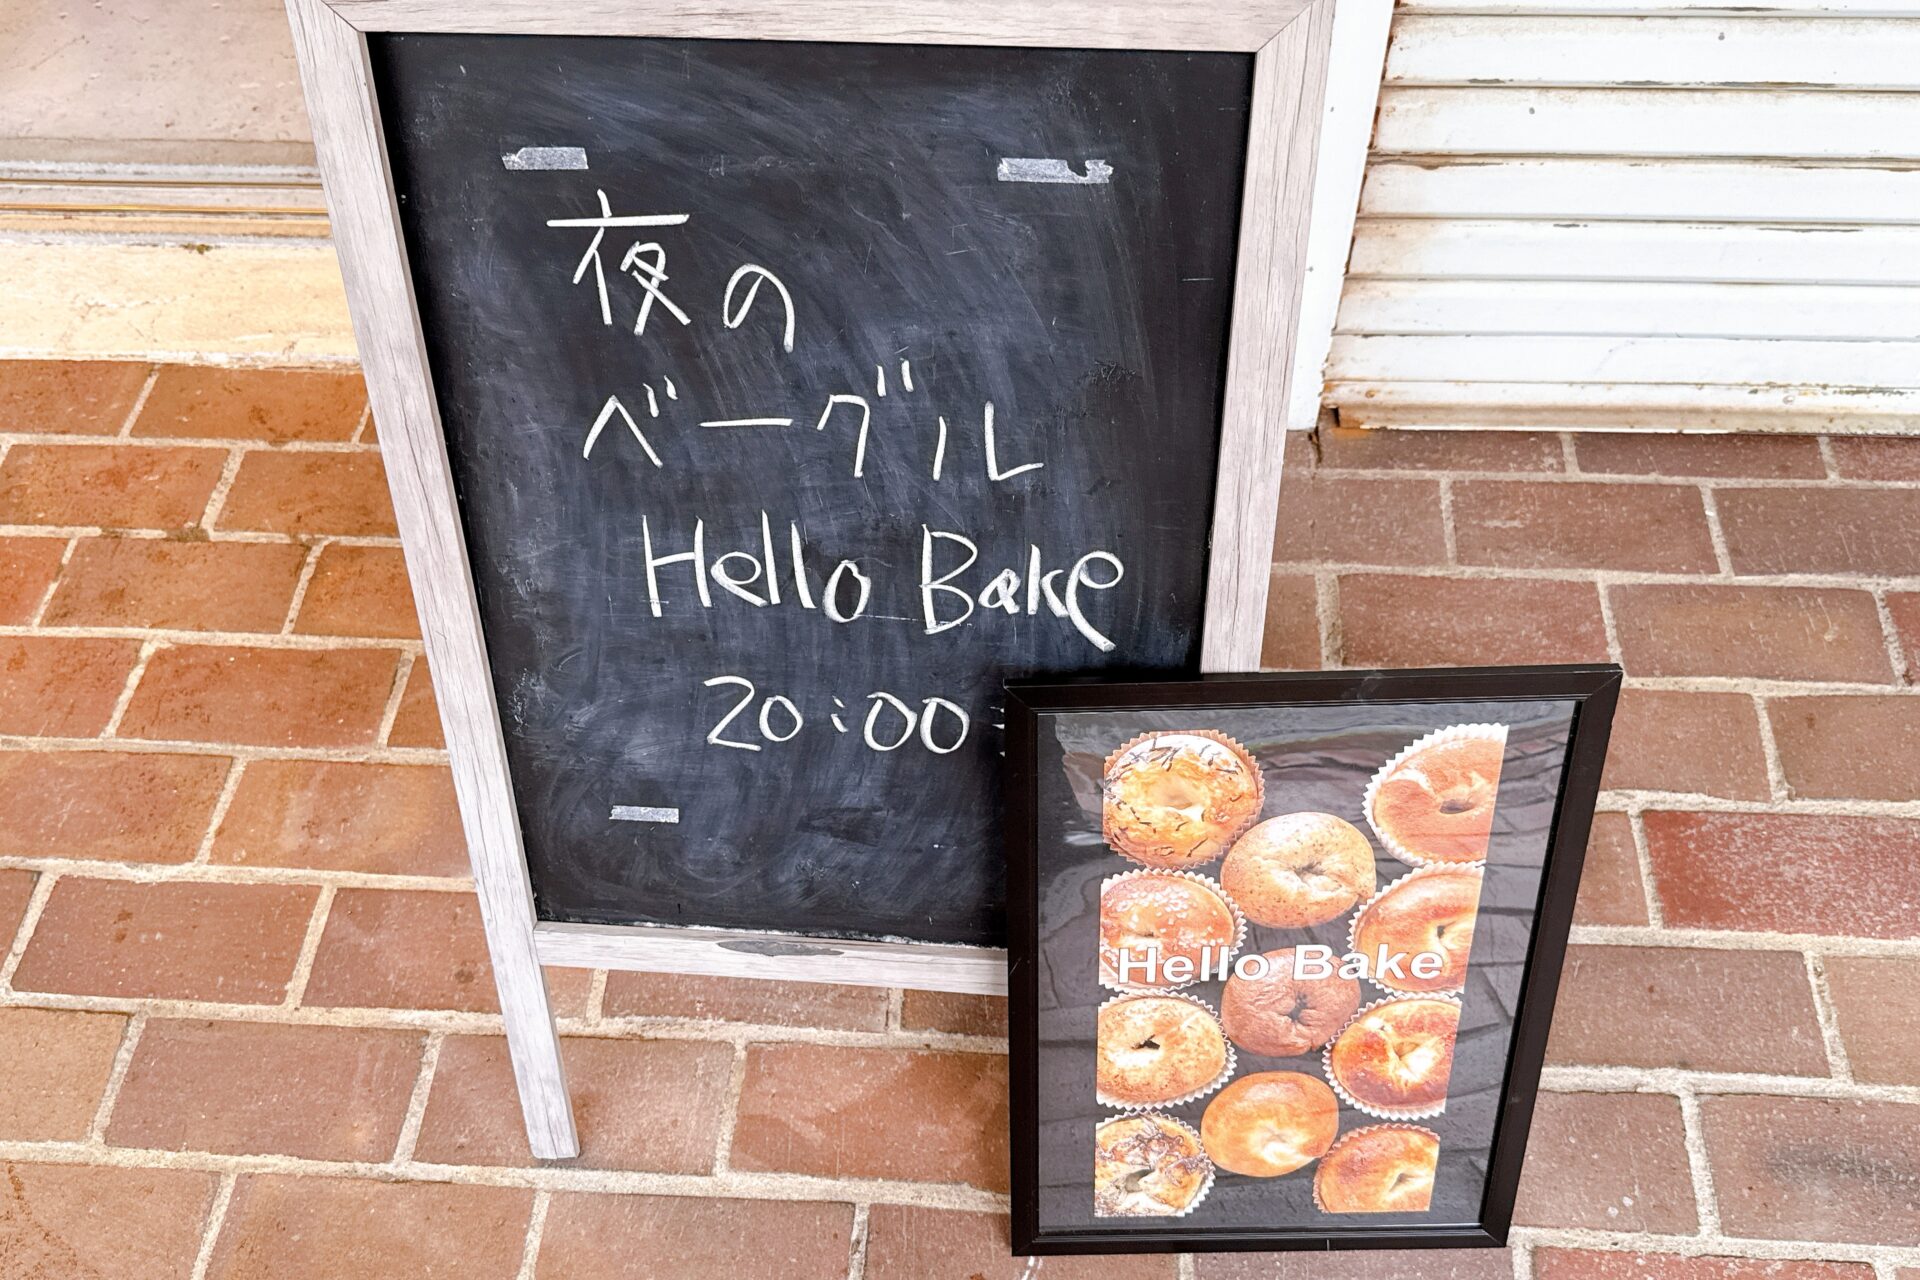 夜の
ベーグル
Hello Bake
20:00
Hello Bake